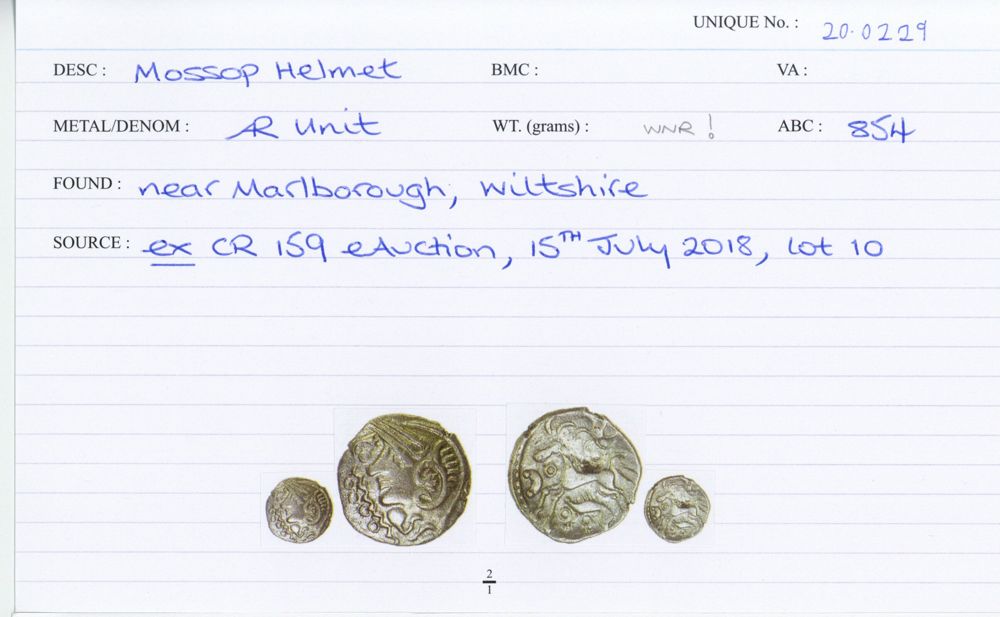 UNIQUE No. : 20.0229
DESC : Mossop Helmet BMC : VA :
METAL/DENOM : AR Unit WT. (grams) : WNR! ABC : 854
FOUND : near Marlborough, Wiltshire
SOURCE : ex CR 159 eAuction, 15TH July 2018, lot 10
2
1